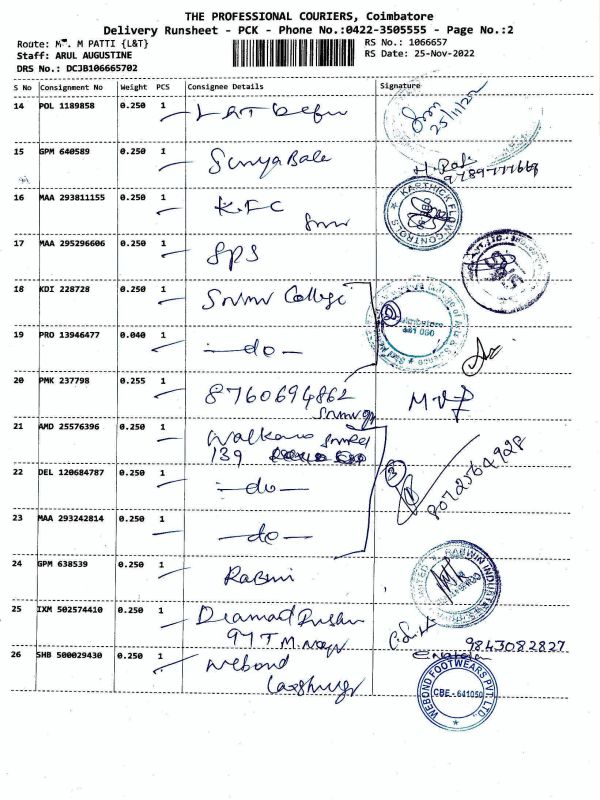 THE PROFESSIONAL COURIERS, Coimbatore
Delivery Runsheet - PCK - Phone No.:0422-3505555 - Page No.:2
Route: M PATTI {L&T}
RS No.: 1066657
Staff: ARUL AUGUSTINE
RS Date: 25-Nov-2022
DRS No.: DCJB106665702
S No Consignment No Weight PCS Consignee Details Signature
14 POL 1189858 0.250 1 L&T
25/11/22
15 GPM 640589 0.250 1 Surya Bala
9789777668
16 MAA 293811155 0.250 1 KFC
KARTHICK FLOW CONTROLS
17 MAA 295296606 0.250 1 SPS
18 KDI 228728 0.250 1 Snmv College
19 PRO 13946477 0.040 1 -do-
Coimbatore
641 050
20 PMK 237798 0.255 1 8760694862
MVP
21 AMD 25576396 0.250 1
139
22 DEL 120684787 0.250 1 -do-
8072564928
23 MAA 293242814 0.250 1 -do-
24 GPM 638539 0.250 1 Rabwin
RABWIN INDUSTRIES
25 IXM 502574410 0.250 1
97 T.M. Nagar
9843082827
26 SHB 500029430 0.250 1 Webond
WEBOND FOOTWEARS PVT. LTD.
CBE-641050